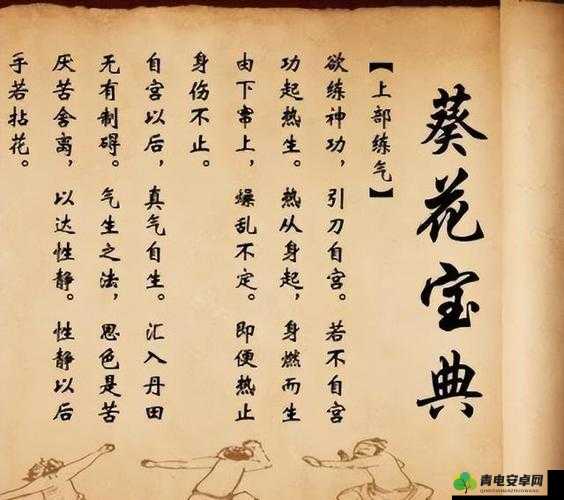 葵花宝典
【上部练气】
欲练神功，引刀自宫。若不自宫
功起热生。热从身起，身燃而生
由下窜上，燥乱不定。即便热止
身伤不止。
自宫以后，真气自生。汇入丹田
无有制碍。气生之法，思色是苦
厌苦舍离，以达性静。性静以后
手若拈花。
青电安卓网